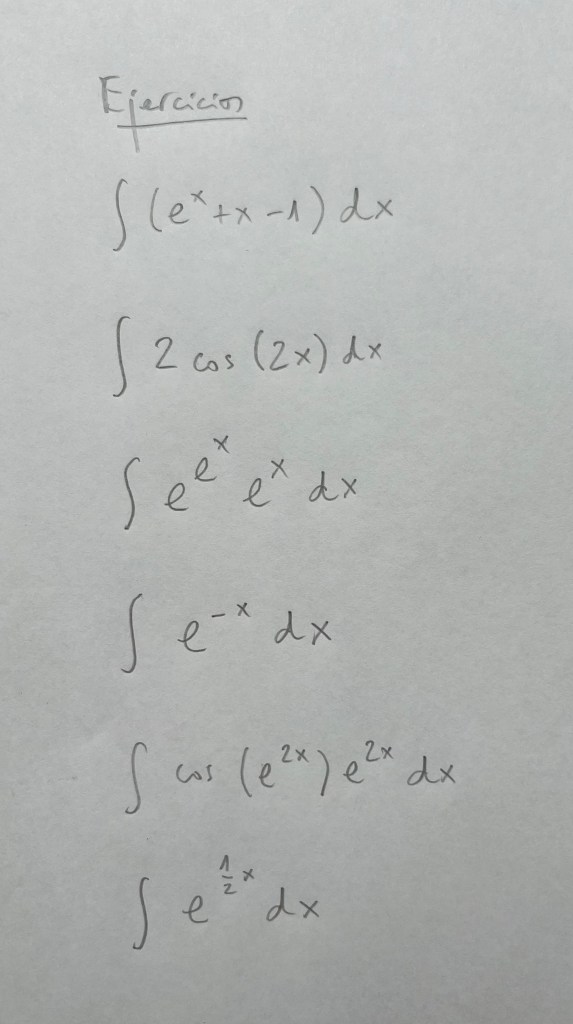 Ejercicios
∫ (eˣ + x - 1) dx
∫ 2 cos (2x) dx
∫ e^{e^x} e^x dx
∫ e^{-x} dx
∫ cos (e^{2x}) e^{2x} dx
∫ e^{\frac{1}{2}x} dx